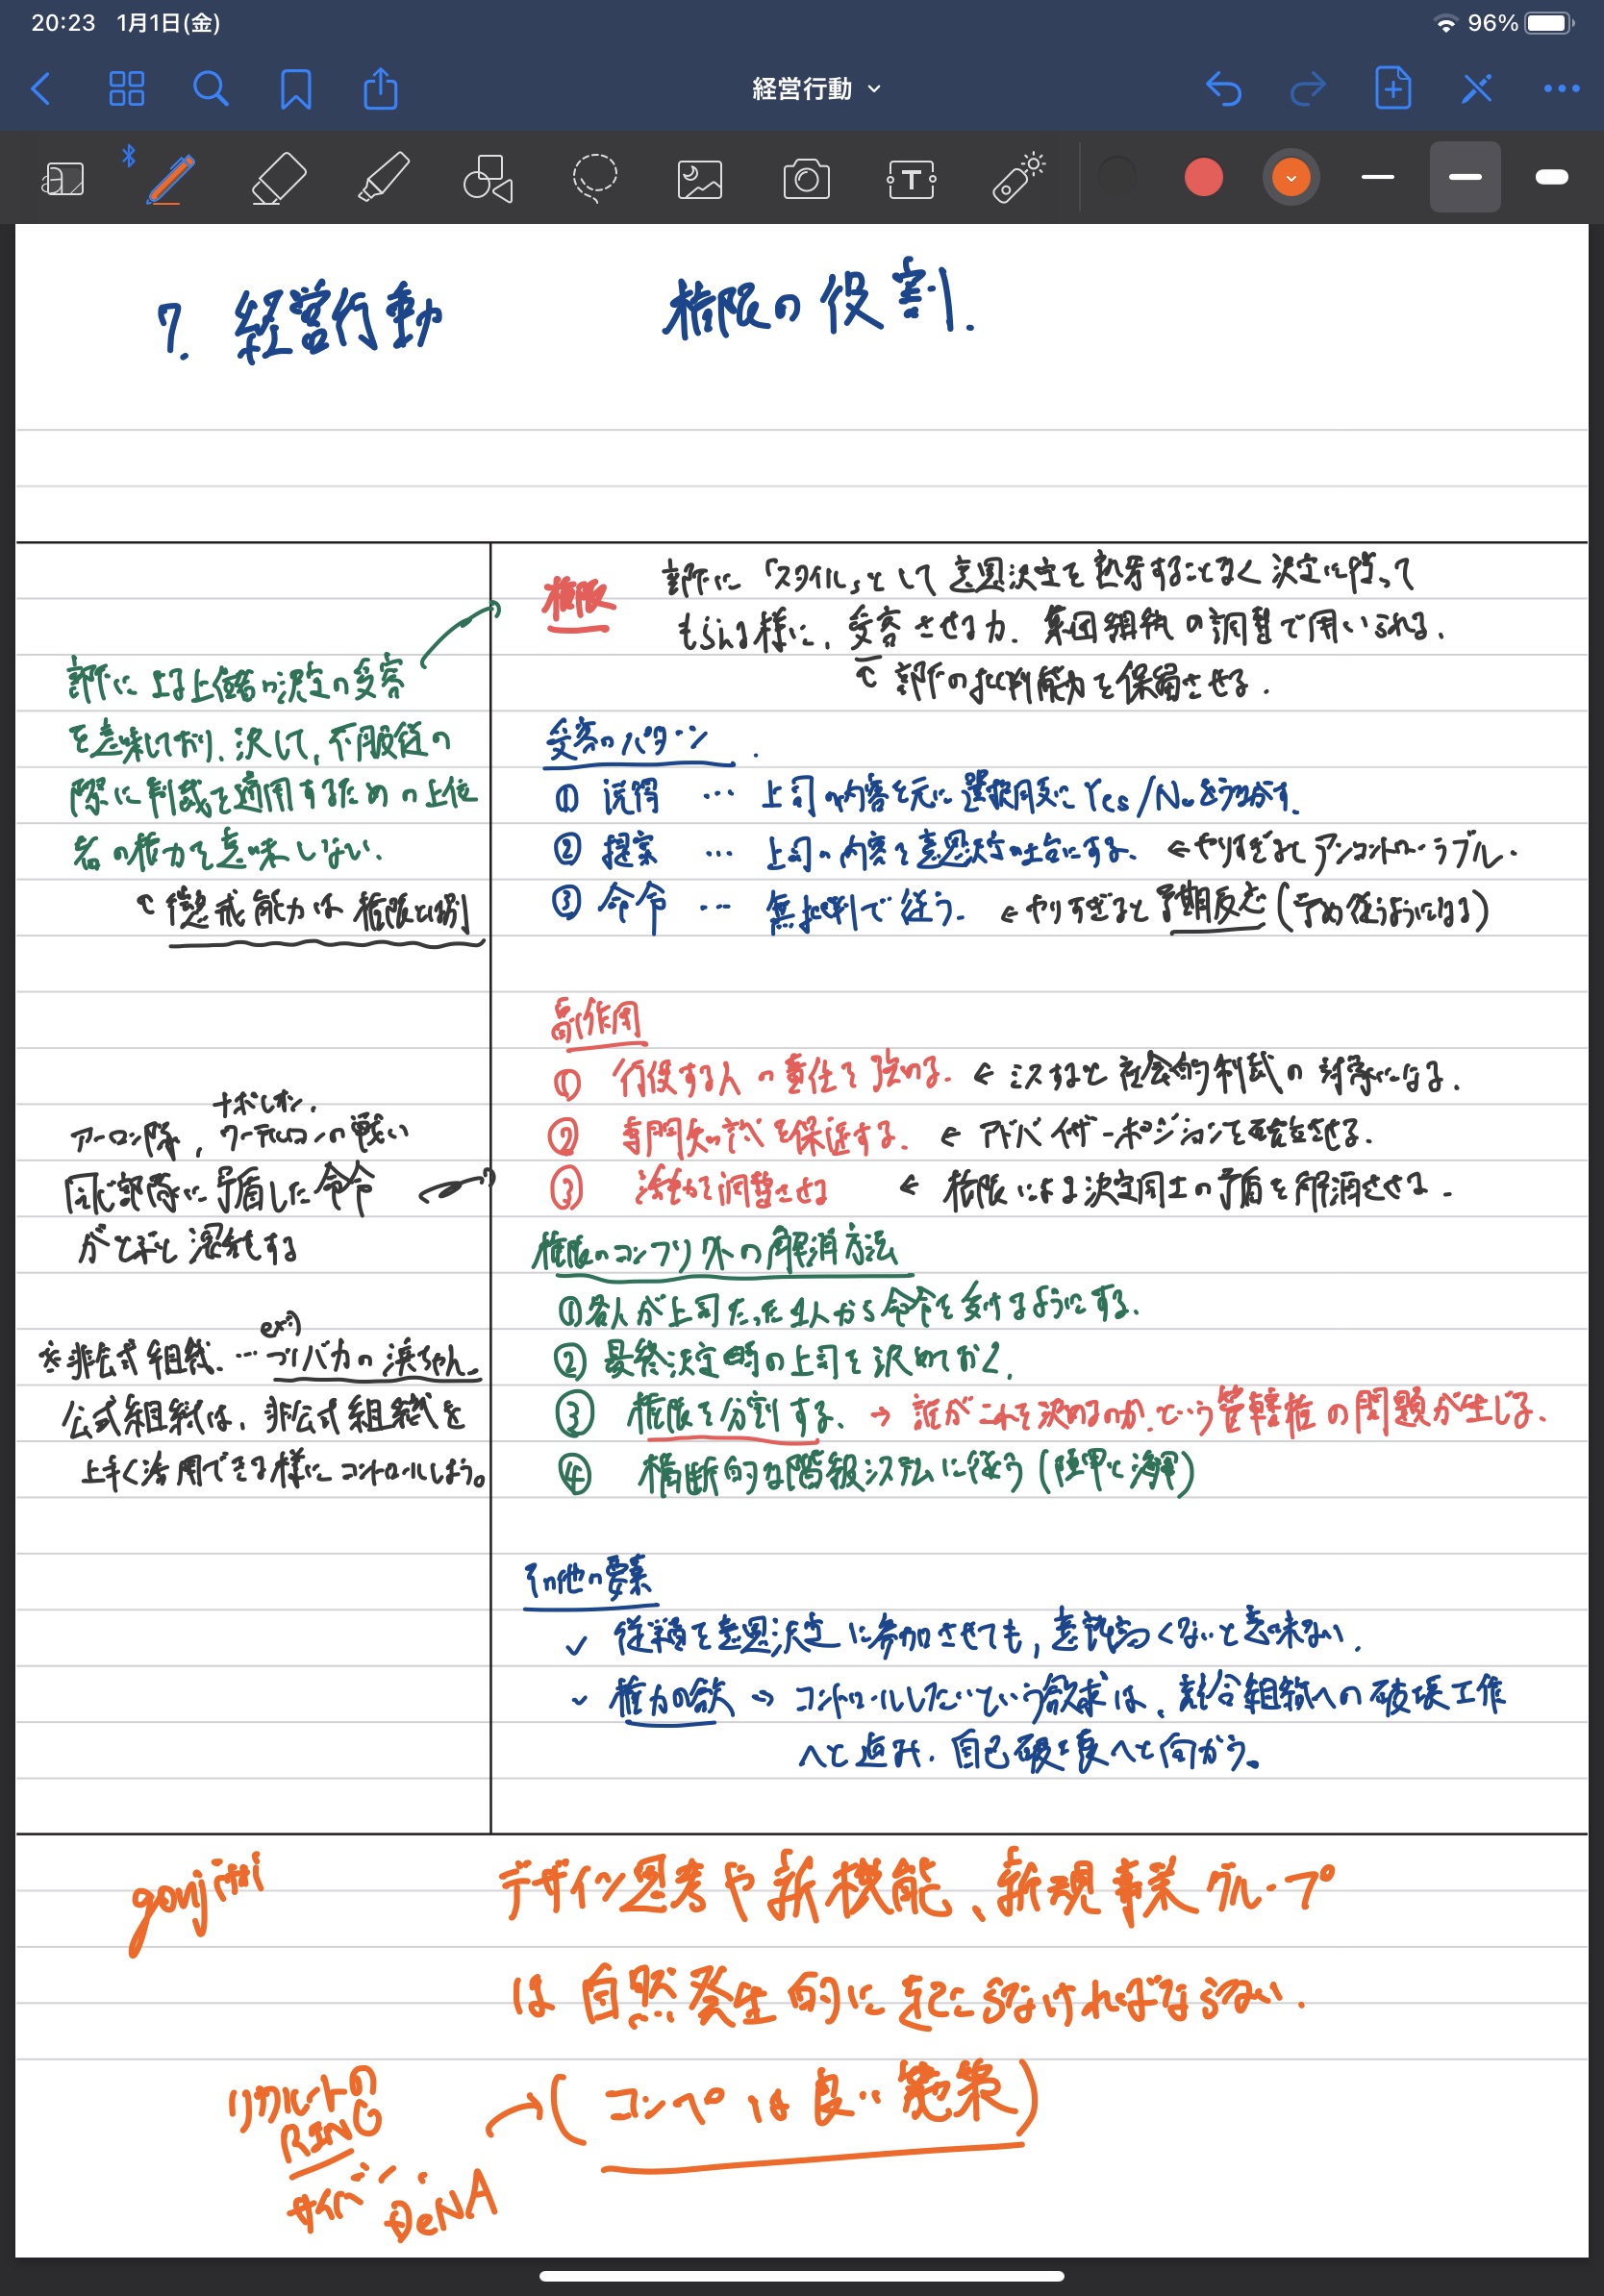 20:23 1月1日(金)
96%
経営行動
7. 経営行動
権限の役割.
権限
部下に「スタイル」として意思決定を熟考することなく決定に従って
もらえる様に、受容させる力. 集団組織の調整で用いられる.
部下の批判能力を保留させる.
部下による上位者の決定の受容
を意味しており、決して、不服従の
際に制裁を適用するための上位
者の権力を意味しない.
懲戒能力は権限とは別
受容のパターン
① 説得 … 上司の内容を元に選択肢にYes/Noをうながす.
② 提案 … 上司の内容を意思決定の土台にする. ←やりすぎるとアンコントローラブル.
③ 命令 … 無批判で従う. ←やりすぎると予期反応(予め従うようになる)
副作用
① 行使する人の責任を強める. ← ミスすると社会的制裁の対象になる.
② 専門知識を保護する. ← アドバイザーポジションを確立させる.
③ 活動を調整させる ← 権限による決定同士の矛盾を解消させる.
ナポレオン.
アーロン隊, ワーテルローの戦い
同じ部隊に矛盾した命令
がとぶと混乱する
権限のコンフリクトの解消方法
①各人が上司たった1人から命令を受けるようにする.
② 最終決定時の上司を決めておく.
③ 権限を分割する. → 誰がこれを決めるのか.という管轄権の問題が生じる.
④ 横断的な階級システムに従う (陸軍に海軍)
ex)
※非公式組織. …づりバカの浜ちゃん.
公式組織は、非公式組織を
上手く活用できる様にコントロールしよう。
その他の要素
✓ 従業員を意思決定に参加させても, 意識高くないと意味ない.
✓ 権力の欲 → コントロールしたいという欲求は、競合組織への破壊工作
へと進み、自己破壊へと向かう。
gonjithi
デザイン思考や新機能、新規事業グループ
は自然発生的に起こらなければならない.
リクルートの
RING
サイバー
DeNA
→( コンペは良い施策)